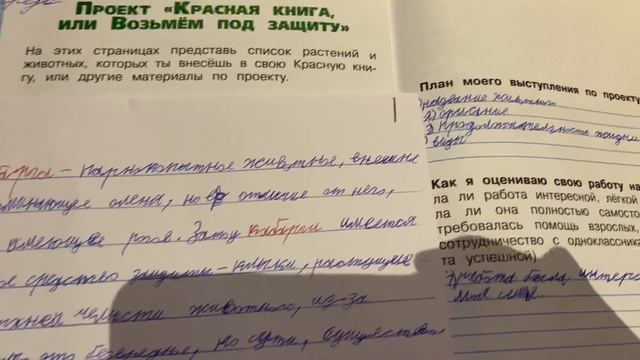 ПРОЕКТ «КРАСНАЯ КНИГА,
ИЛИ ВОЗЬМЁМ ПОД ЗАЩИТУ»
На этих страницах представь список растений и
животных, которых ты внесёшь в свою Красную кни-
гу, или другие материалы по проекту.
– парнокопытное животное, внешне
оленя, но в отличие от него,
рогов. Зато кабарги имеется
средство защиты – клыки, растущие
челюсти животного, из-за
это безвредные, но
План моего выступления по проекту
название животного
2) описание
3) Продолжительность жизни
виды
Как я оцениваю свою работу на
ла ли работа интересной, лёгкой
ла ли она полностью самосто
требовалась помощь взрослых,
сотрудничество с одноклассника
та успешной)
работа была интере